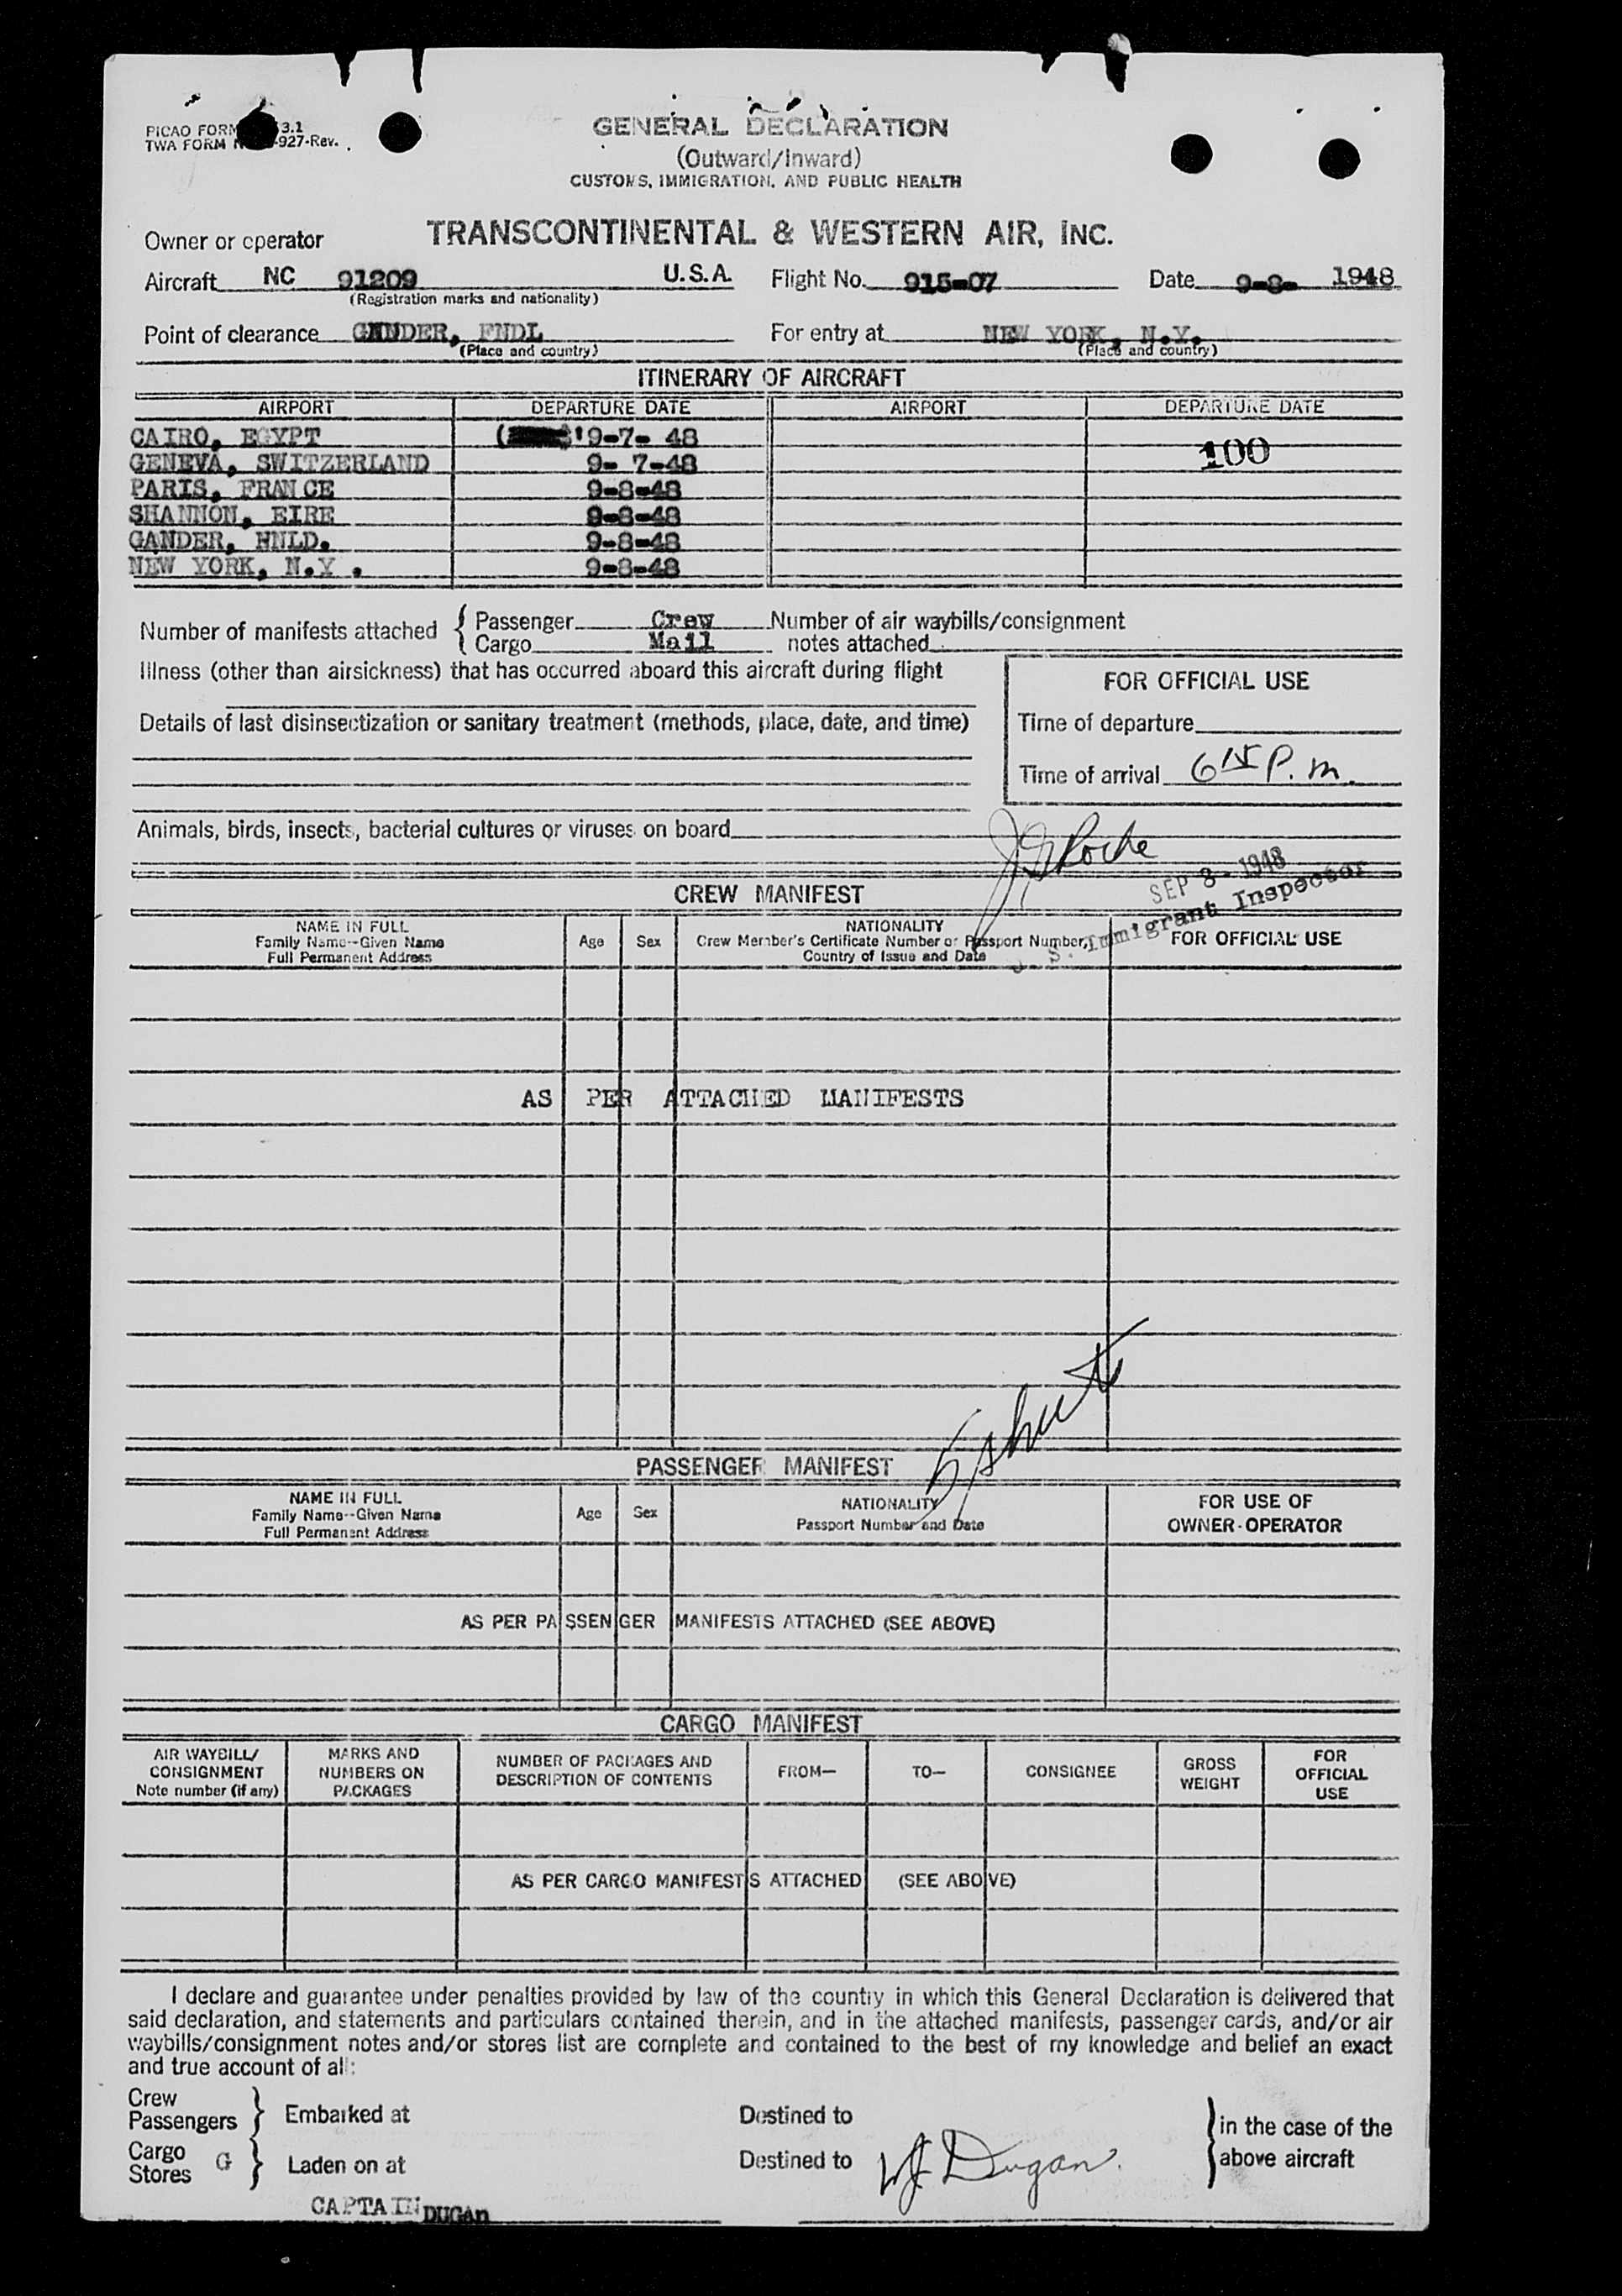 PICAO FORM 3.1
TWA FORM -927-Rev.
GENERAL DECLARATION
(Outward/Inward)
CUSTOMS, IMMIGRATION, AND PUBLIC HEALTH
Owner or operator TRANSCONTINENTAL & WESTERN AIR, INC.
Aircraft NC 91209 U.S.A. Flight No. 915-07 Date 9-8- 1948
(Registration marks and nationality)
Point of clearance GANDER, FNDL For entry at NEW YORK, N.Y.
(Place and country) (Place and country)
ITINERARY OF AIRCRAFT
AIRPORT DEPARTURE DATE AIRPORT DEPARTURE DATE
CAIRO, EGYPT 9-7- 48
GENEVA, SWITZERLAND 9- 7-48 100
PARIS, FRANCE 9-8-48
SHANNON, EIRE 9-8-48
GANDER, HNLD. 9-8-48
NEW YORK, N.Y . 9-8-48
Number of manifests attached { Passenger Crew Number of air waybills/consignment
Cargo Mail notes attached
Illness (other than airsickness) that has occurred aboard this aircraft during flight
FOR OFFICIAL USE
Details of last disinsectization or sanitary treatment (methods, place, date, and time)
Time of departure
Time of arrival 6 15 P.m.
Animals, birds, insects, bacterial cultures or viruses on board
J Roche
SEP 8 - 1948
U. S. Immigrant Inspector
CREW MANIFEST
NAME IN FULL
Family Name--Given Name
Full Permanent Address
Age Sex
NATIONALITY
Crew Member's Certificate Number or Passport Number,
Country of Issue and Date
FOR OFFICIAL USE
AS PER ATTACHED MANIFESTS
PASSENGER MANIFEST
NAME IN FULL
Family Name--Given Name
Full Permanent Address
Age Sex
NATIONALITY
Passport Number and Date
FOR USE OF
OWNER-OPERATOR
AS PER PASSENGER MANIFESTS ATTACHED (SEE ABOVE)
CARGO MANIFEST
AIR WAYBILL/
CONSIGNMENT
Note number (if any)
MARKS AND
NUMBERS ON
PACKAGES
NUMBER OF PACKAGES AND
DESCRIPTION OF CONTENTS
FROM—
TO—
CONSIGNEE
GROSS
WEIGHT
FOR
OFFICIAL
USE
AS PER CARGO MANIFESTS ATTACHED (SEE ABOVE)
I declare and guarantee under penalties provided by law of the country in which this General Declaration is delivered that
said declaration, and statements and particulars contained therein, and in the attached manifests, passenger cards, and/or air
waybills/consignment notes and/or stores list are complete and contained to the best of my knowledge and belief an exact
and true account of all:
Crew
Passengers } Embarked at Destined to
Cargo
Stores G } Laden on at Destined to
} in the case of the
above aircraft
WJ Dugan.
CAPTAIN DUGAN